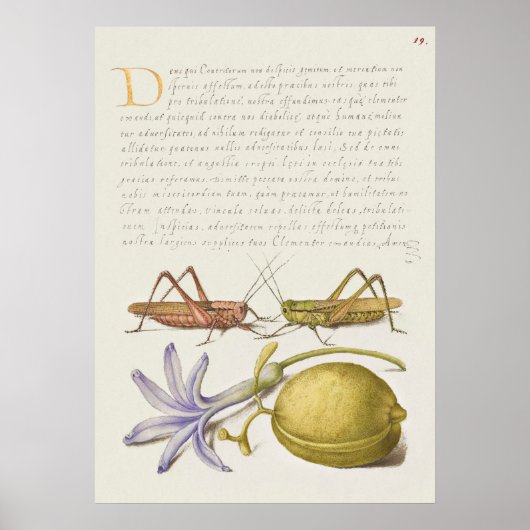 19.
Deus qui Contritorum non despicis gemitum, et merentium non
spernis affectum, adesto precibus nostris, quas tibi
pro tribulatione, nostra effundimus easque clementer
exaudi, ut quicquid contra nos diabolice, atque humane molìun
tur adversitatis, ad nihilum redigatur et consilio tua pietatis
allidatur quatenus nullis adversitatibus lesi, sed de omni
tribulatione, et angustia erepti leti in ecclesia tua tibi
gratias referamus. Dimitte peccata nostra domine, et tribue
nobis misericordiam tuam, quam precamur, ut humilitatem no
stram attendas, vincula soluas, delicta deleas, tribulati-
onem Inspicias, adversitatem repellas effectumque petitionis
nostra largiens supplices tuos Clementer exaudias, Amen